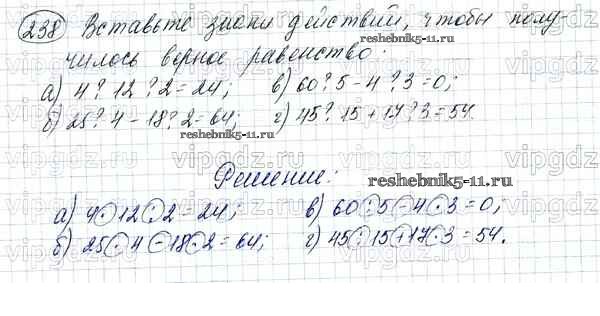 238 Вставьте знаки действий, чтобы полу-
reshebnik5-11.ru
чилось верное равенство:
а) 4 ? 12 ? 2 = 24; в) 60 ? 5 - 4 ? 3 = 0;
б) 25 ? 4 - 18 ? 2 = 64; г) 45 ? 15 + 17 ? 3 = 54.
reshebnik5-11.ru
vipgdz.ru vipgdz.ru vipgdz.ru
Решение:
reshebnik5-11.ru
а) 4 · 12 : 2 = 24; в) 60 : 5 - 4 · 3 = 0;
б) 25 · 4 - 18 · 2 = 64; г) 45 : 15 + 17 · 3 = 54.